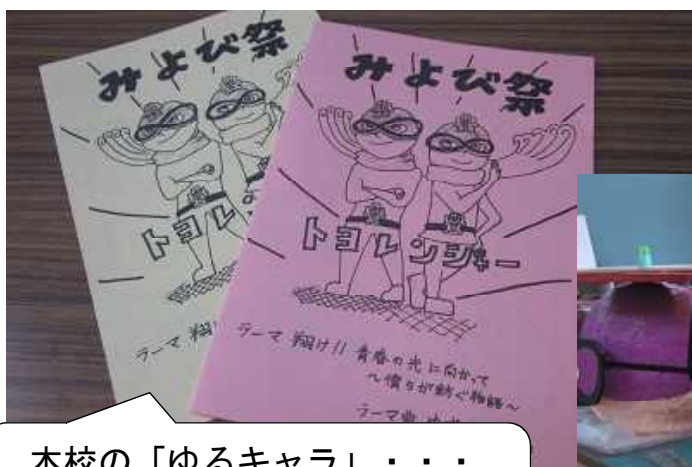 みよび祭
トヨレン
テーマ 翔け
みよび祭
トヨレンジャー
テーマ 翔け!! 青春の光に向かって
～僕らが紡ぐ物語～
テーマ曲
本校の「ゆるキャラ」・・・